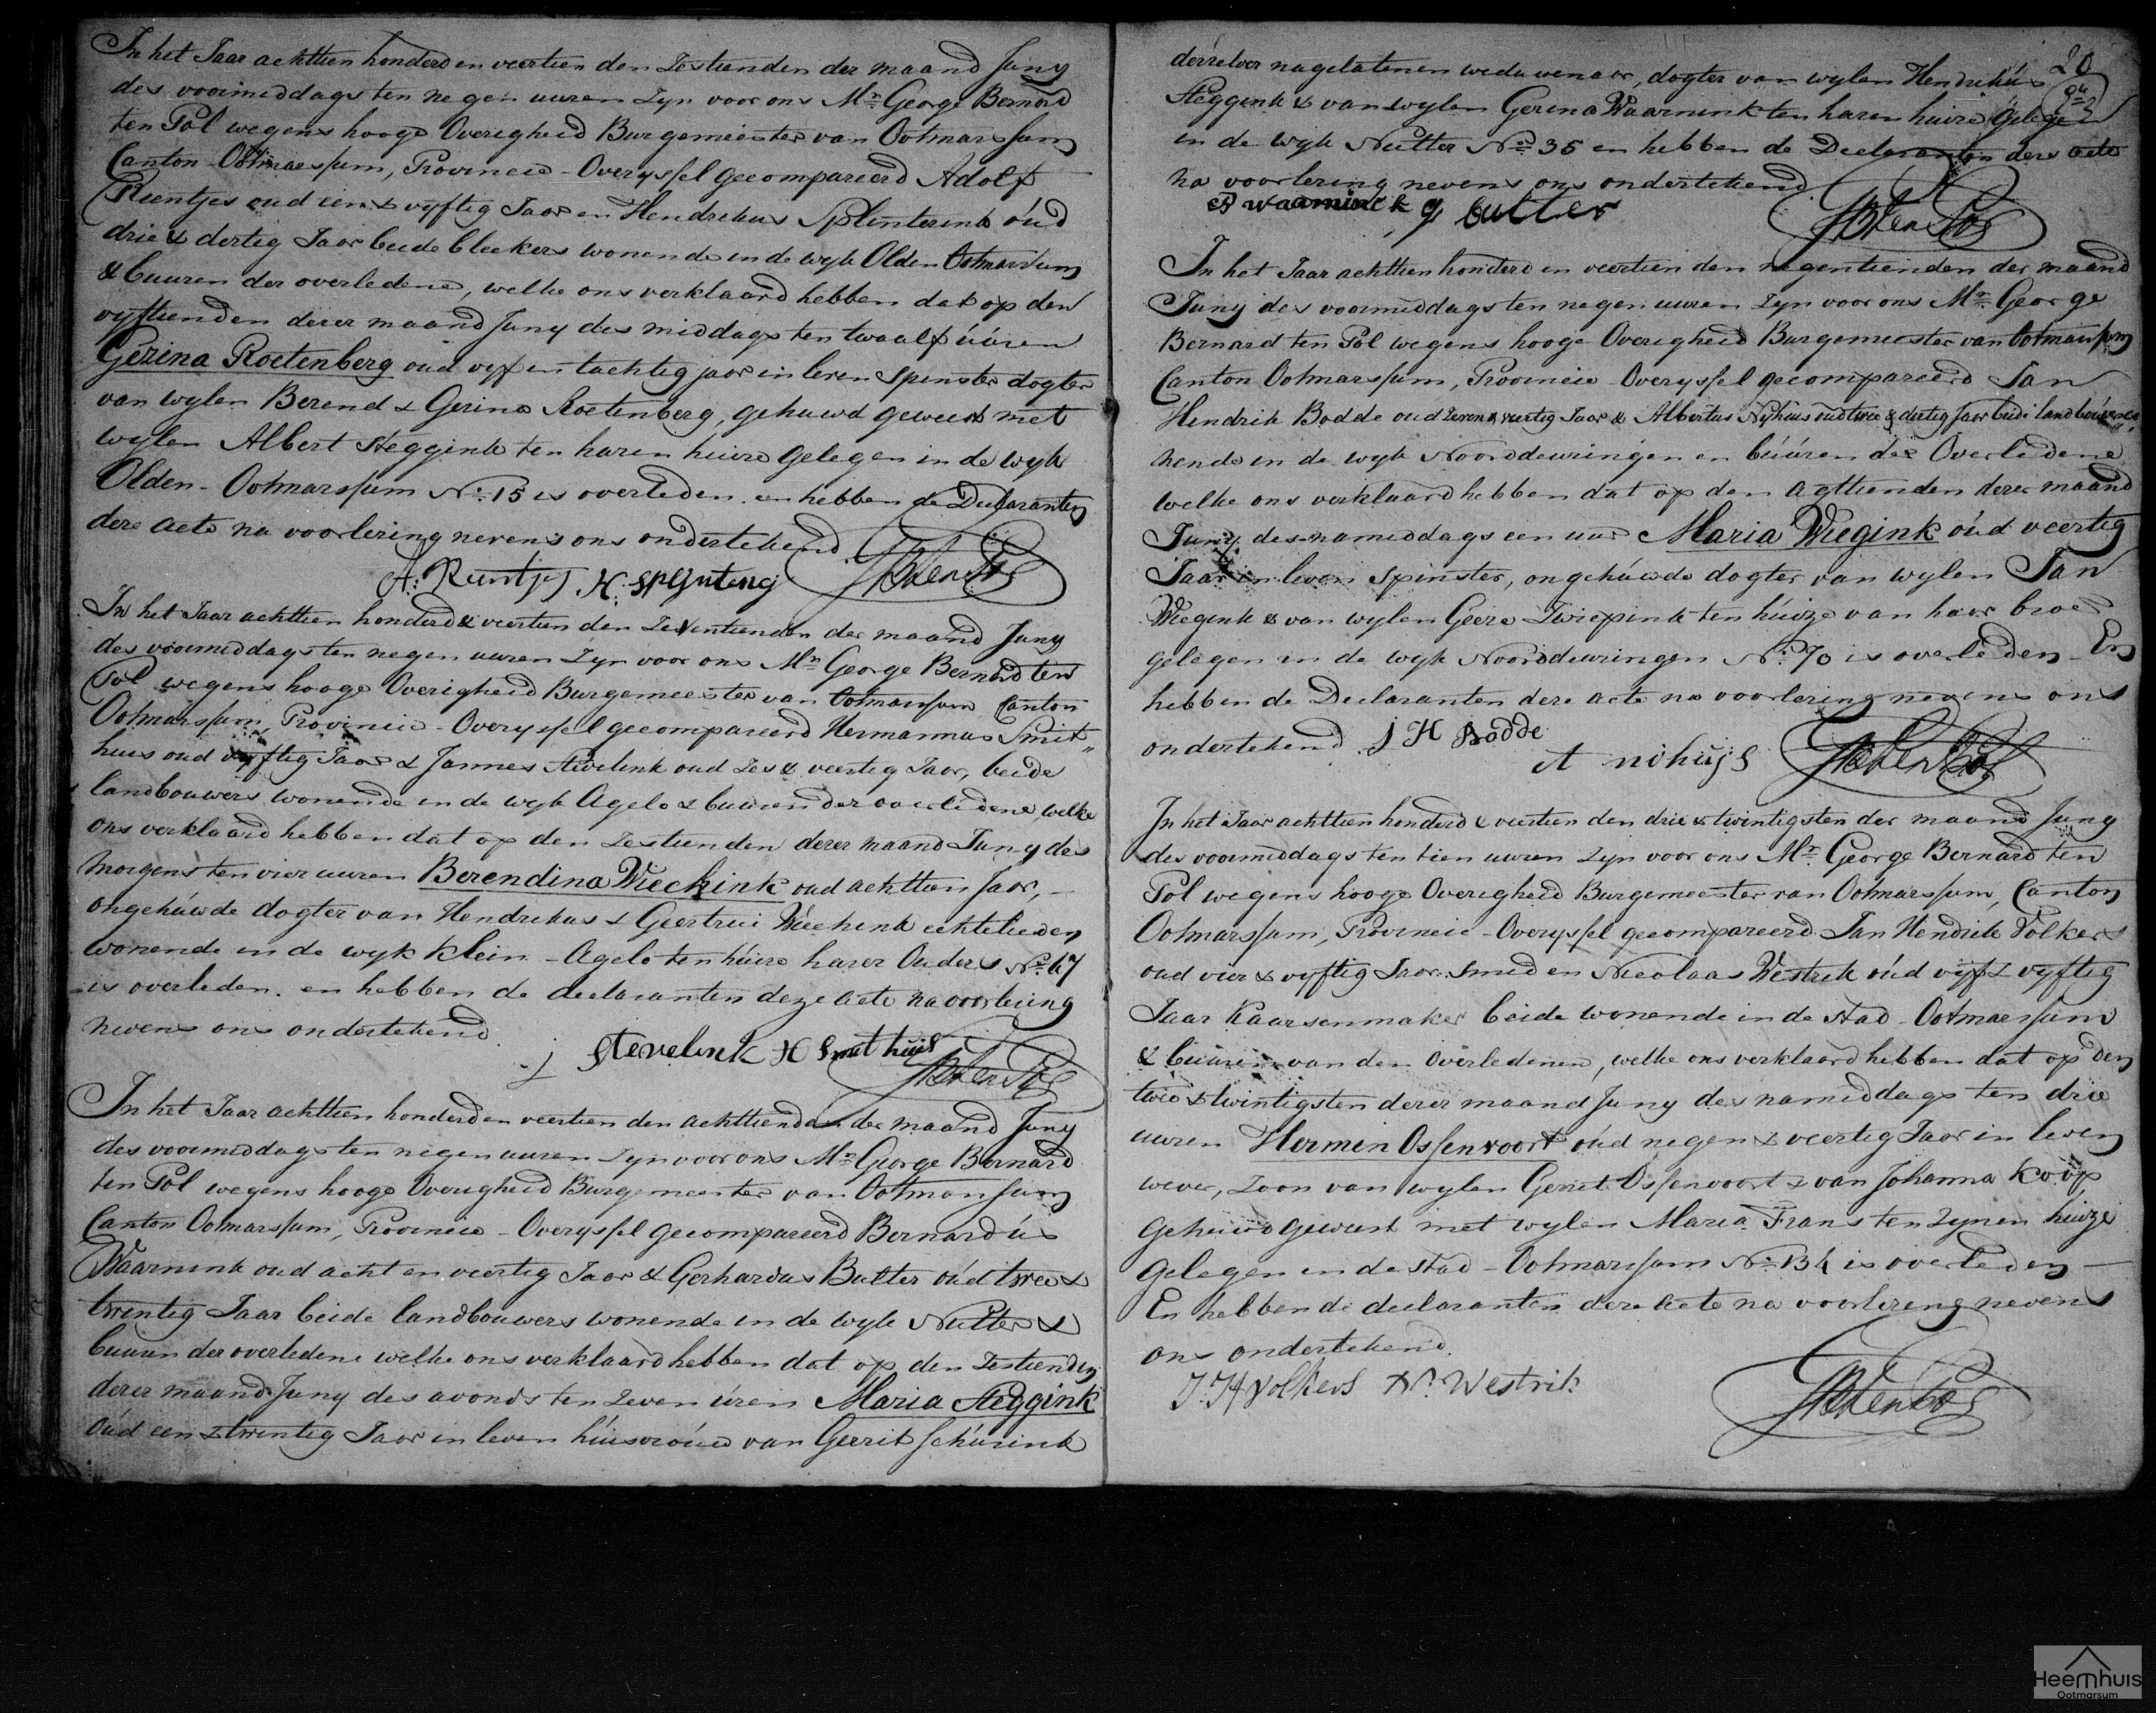 In het Jaar achttien honderd en veertien den Zestienden der maand Juny
des voormiddags ten negen uuren Zyn voor ons Mr. George Bernard
ten Pol wegens hooge Overigheid Burgemeester van Ootmarssum
Canton Ootmarssum, Provincie - Overyssel gecompareerd Adolf
Rientjes oud een & vyftig Jaar en Hendrikus Splenterink oud
drie & dertig Jaar beide bleekers wonende in de wyk Olden Ootmarssum
& buuren der overledene, welke ons verklaard hebben dat op den
vyftienden dezer maand Juny des middags ten twaalf uuren
Gezina Roetenberg oud vyf en tachtig jaar in leven Spinster dogter
van wylen Berend & Gerina Roetenberg, gehuwd geweest met
wylen Albert Steggink ten haren huize gelegen in de wyk
Olden - Ootmarssum No. 15 is overleden. en hebben de Declaranten
deze acte na voorlezing nevens ons ondertekend
A: Rientjes H: Splynteng GB ten Pol
In het Jaar achttien honderd & veertien den Zeventienden der maand Juny
des voormiddags ten negen uuren Zyn voor ons Mr. George Bernard ten
Pol wegens hooge Overigheid Burgemeester van Ootmarssum Canton
Ootmarssum, Provincie - Overyssel gecompareerd Hermannus Smit"
huis oud vyftig Jaar & Jannes Stevelink oud Zes & veertig Jaar, beide
landbouwers wonende in de wyk Agelo & buuren der overledene welke
ons verklaard hebben dat op den Zestienden dezer maand Juny des
morgens ten vier uuren Berendina Wiechink oud achttien Jaar, -
ongehuwde dogter van Hendrikus & Geertrui Wiechink echtelieden
wonende in de wyk Klein - Agelo ten huize harer Ouders No. 67
is overleden. en hebben de declaranten deze acte na voorlezing
nevens ons ondertekend
j Stevelink H Smithuis GB ten Pol
In het Jaar achttien honderd en veertien den achttienden der maand Juny
des voormiddags ten negen uuren Zyn voor ons Mr. George Bernard
ten Pol wegens hooge Overigheid Burgemeester van Ootmarssum
Canton Ootmarssum, Provincie - Overyssel gecompareerd Bernardus
Waarnink oud acht en veertig Jaar & Gerhardus Butter oud twee &
twintig Jaar beide landbouwers wonende in de wyk Nutter &
buuren der overledene welke ons verklaard hebben dat op den Zestienden
dezer maand Juny des avonds ten Zeven uren Maria Steggink
oud een & twintig Jaar in leven huisvrouw van Gerrit Schurink
20
derzelver nagelatenen weduwenaar, dogter van wylen Hendrikus
Steggink & van wylen Gerina Waarnink ten haren huize gelegen
in de wyk Nutter No. 35 en hebben de Declaranten deze acte
na voorlezing nevens ons ondertekend
B waarninck g butter GB ten Pol
In het Jaar achttien honderd en veertien den negentienden der maand
Juny des voormiddags ten negen uuren Zyn voor ons Mr. George
Bernard ten Pol wegens hooge Overigheid Burgemeester van Ootmarssum
Canton Ootmarssum, Provincie - Overyssel gecompareerd Jan
Hendrik Bodde oud Zeven & veertig Jaar & Albertus Nyhuis oud twee & dertig Jaar beide landbouwers
nende in de wyk Noorddeuringen en buuren der Overledene
welke ons verklaard hebben dat op den agttienden dezer maand
Juny des namiddags een uur Maria Wiegink oud veertig
Jaar in leven Spinster, ongehuwde dogter van wylen Jan
Wiegink & van wylen Geere Twiepink ten huize van haar broer
gelegen in de wyk Noorddeuringen No. 70 is overleden - En
hebben de Declaranten deze acte na voorlezing nevens ons
ondertekend J H Bodde
A nihuys GB ten Pol
In het Jaar achttien honderd & veertien den drie & twintigsten der maand Juny
des voormiddags ten tien uuren Zyn voor ons Mr. George Bernard ten
Pol wegens hooge Overigheid Burgemeester van Ootmarssum, Canton
Ootmarssum, Provincie - Overyssel gecompareerd Jan Hendrik Volkers
oud vier & vyftig Jaar Smid en Nicolaas Westrik oud vyf & vyftig
Jaar Kaarsenmaker beide wonende in de stad - Ootmarssum
& buuren van den Overledenen, welke ons verklaard hebben dat op den
twee & twintigsten dezer maand Juny des namiddags ten drie
uuren Hermen Ossenvoort oud negen & veertig Jaar in leven
wever, Zoon van wylen Gerrit Ossenvoort & van Johanna Koop
gehuwd geweest met wylen Maria Frans ten Zynen huize
gelegen in de stad - Ootmarssum No. 134 is overleden -
En hebben de declaranten deze acte na voorlezing nevens
ons ondertekend.
J. H Volkers N: Westrik GB ten Pol
Heemhuis
Ootmarsum